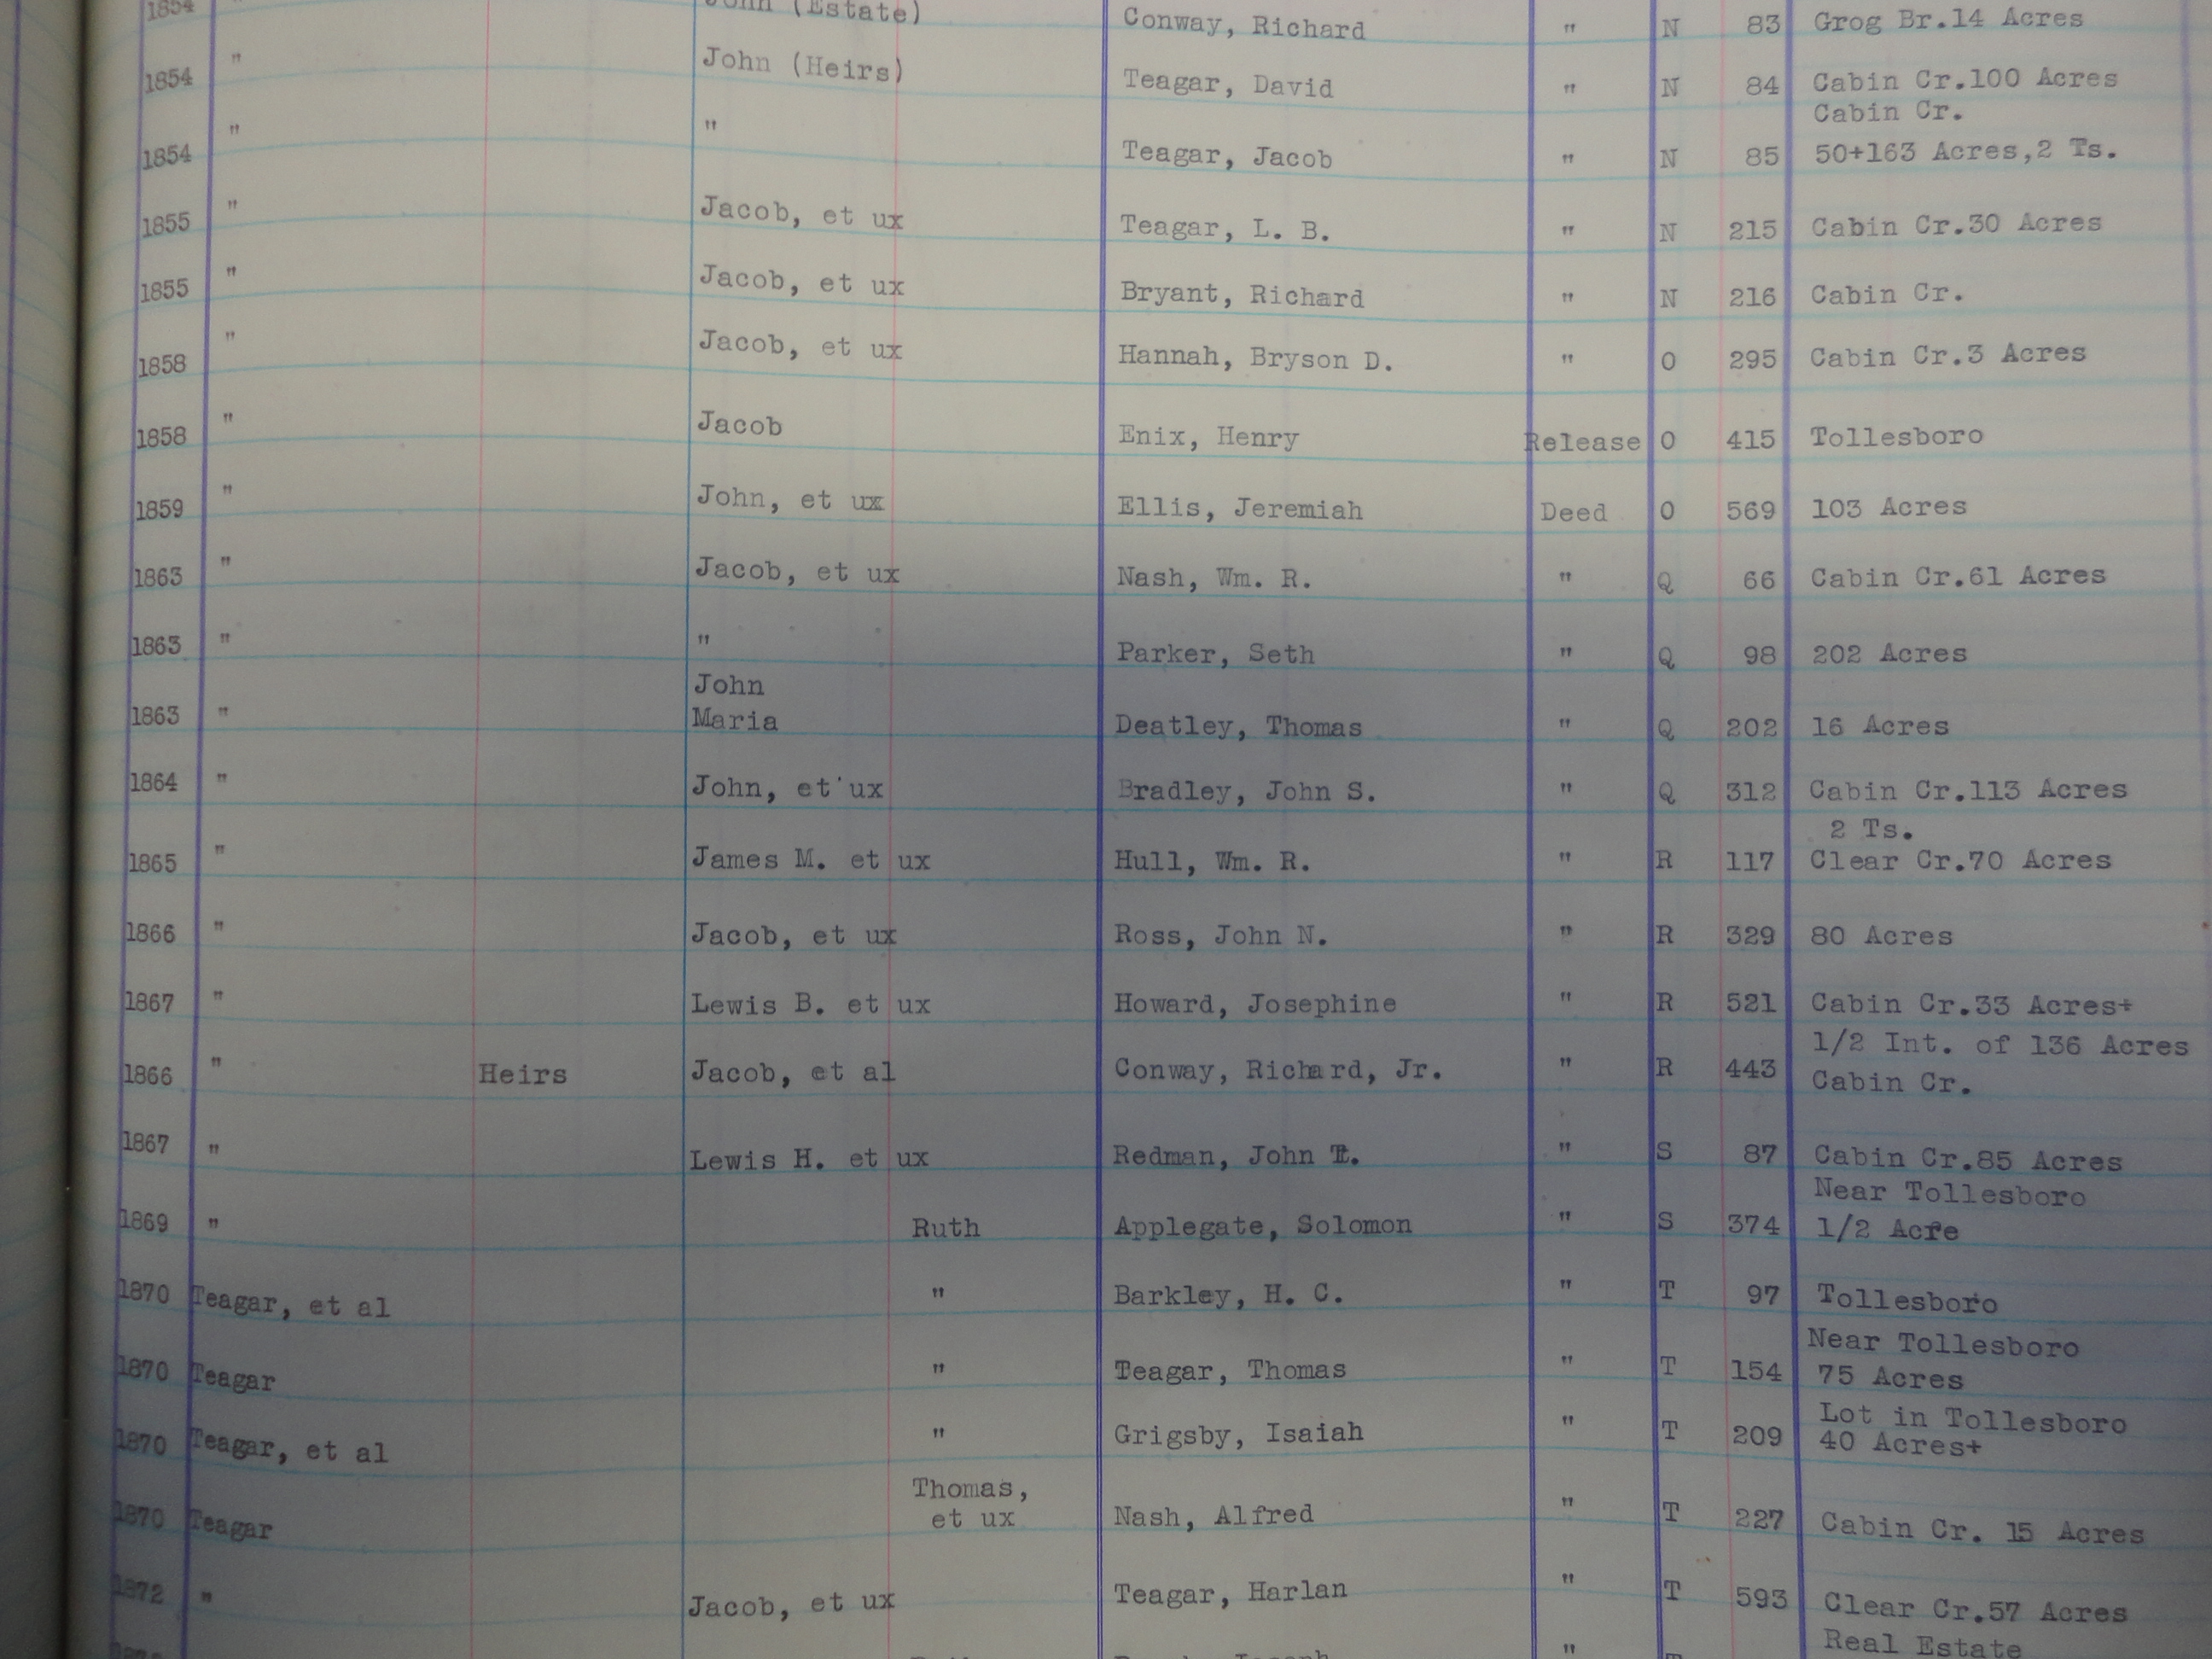 1854 John (Estate) Conway, Richard " N 83 Grog Br.14 Acres
1854 " John (Heirs) Teagar, David " N 84 Cabin Cr.100 Acres
Cabin Cr.
1854 " " Teagar, Jacob " N 85 50+163 Acres,2 Ts.
1855 " Jacob, et ux Teagar, L. B. " N 215 Cabin Cr.30 Acres
1855 " Jacob, et ux Bryant, Richard " N 216 Cabin Cr.
1858 " Jacob, et ux Hannah, Bryson D. " O 295 Cabin Cr.3 Acres
1858 " Jacob Enix, Henry Release O 415 Tollesboro
1859 " John, et ux Ellis, Jeremiah Deed O 569 103 Acres
1863 " Jacob, et ux Nash, Wm. R. " Q 66 Cabin Cr.61 Acres
1863 " " Parker, Seth " Q 98 202 Acres
John
1863 " Maria Deatley, Thomas " Q 202 16 Acres
1864 " John, et ux Bradley, John S. " Q 312 Cabin Cr.113 Acres
2 Ts.
1865 " James M. et ux Hull, Wm. R. " R 117 Clear Cr.70 Acres
1866 " Jacob, et ux Ross, John N. " R 329 80 Acres
1867 " Lewis B. et ux Howard, Josephine " R 521 Cabin Cr.33 Acres+
1/2 Int. of 136 Acres
1866 " Heirs Jacob, et al Conway, Richard, Jr. " R 443 Cabin Cr.
1867 " Lewis H. et ux Redman, John T. " S 87 Cabin Cr.85 Acres
Near Tollesboro
1869 " Ruth Applegate, Solomon " S 374 1/2 Acre
1870 Teagar, et al " Barkley, H. C. " T 97 Tollesboro
Near Tollesboro
1870 Teagar " Teagar, Thomas " T 154 75 Acres
Lot in Tollesboro
1870 Teagar, et al " Grigsby, Isaiah " T 209 40 Acres+
Thomas,
1870 Teagar et ux Nash, Alfred " T 227 Cabin Cr. 15 Acres
1872 " Jacob, et ux Teagar, Harlan " T 593 Clear Cr.57 Acres
" Real Estate